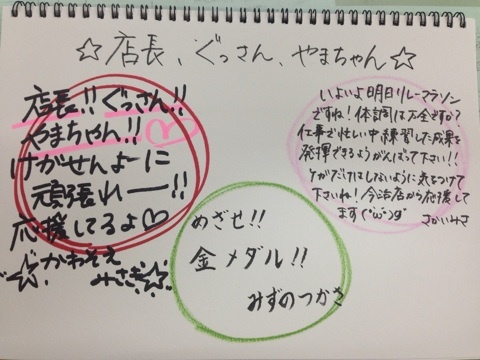 ☆店長、ぐっさん、やまちゃん☆
店長!! ぐっさん!!
やまちゃん!! ♡
けがせんよーに
頑張れー!!
応援してるよ♡
☆かわぞえ
みさき☆
めざせ!!
金メダル!!
みずのつかさ
いよいよ明日リレーマラソン
ですね!体調は万全ですか?
仕事で忙しい中練習した成果を
発揮できるようがんばって下さい!!
ケガだけはしないように気をつけて
下さいね!今治店から応援して
ます
さかいみさ